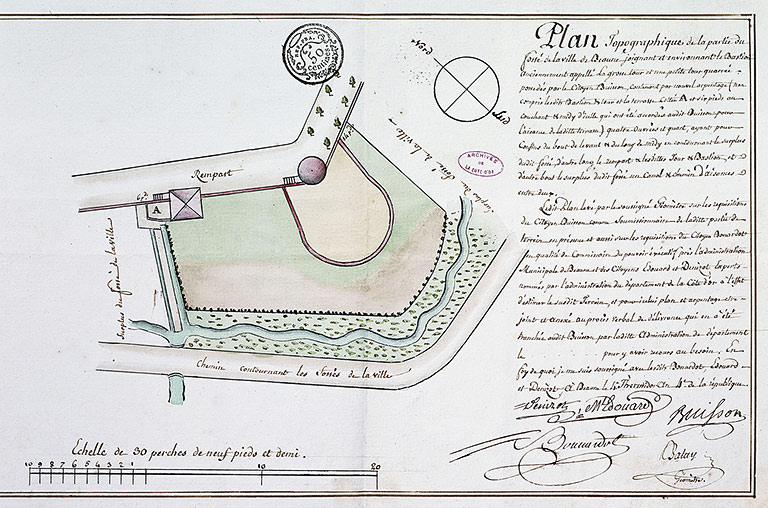 Plan Topographique de la partie du
fossé de la ville de Beaune joignant et environnant le Bastion
anciennement appellé la grosse tour et une petite tour quarrée
possédés par le Citoyen Buisson, contenant par nouvel arpentage (non
compris lesdits Bastion & tour et la terrasse Cottée A et dix pieds au
couchant & midy d'icelle qui ont été accordés audit Buisson pour
l'aisance de ladite terrasse) quatre ouvrées et quart, ayant pour
Confins du bout de levant & du long de midy en contournant le surplus
dudit fossé, d'autre long le rempart & lesdites Tour & Bastion, et
d'autre bout le surplus dudit fossé un Canal & chemin d'aisances
entre deux.
Ledit Plan levé par le soussigné Géomètre sur les réquisitions
du Citoyen Buisson comme Soumissionnaire de ladite partie de
terrein en présence et aussi sur les réquisitions du Citoyen Bouardot
en qualité de Commissaire du pouvoir exécutif près l'administration
Municipale de Beaune et des Citoyens Edouard et Denizot experts
nommés par l'administration du département de la Côte d'Or à l'effet
d'estimer le susdit Terrein, et pour icelui plan et arpentage être
joint et annexé au procès verbal de délivrance qui en a été
tranchée audit Buisson par ladite Administration du département
le pour y avoir recours au besoin. En
foy de quoi, je me suis soussigné avec lesdits Bouardot, Edouard
et Denizot, A Beaune le Thermidor An 4e de la république.
Denizot Edouard Buisson
Bouardot Balay
Géomètre
Nord
Sud
ARCHIVES
DE
LA CÔTE D'OR
50
centimes
Surplus du fossé de la ville
Rempart
A
Surplus du fossé de la ville
Chemin contournant les fossés de la ville
Echelle de 30 perches de neuf pieds et demi.
10 9 8 7 6 5 4 3 2 1 10 20